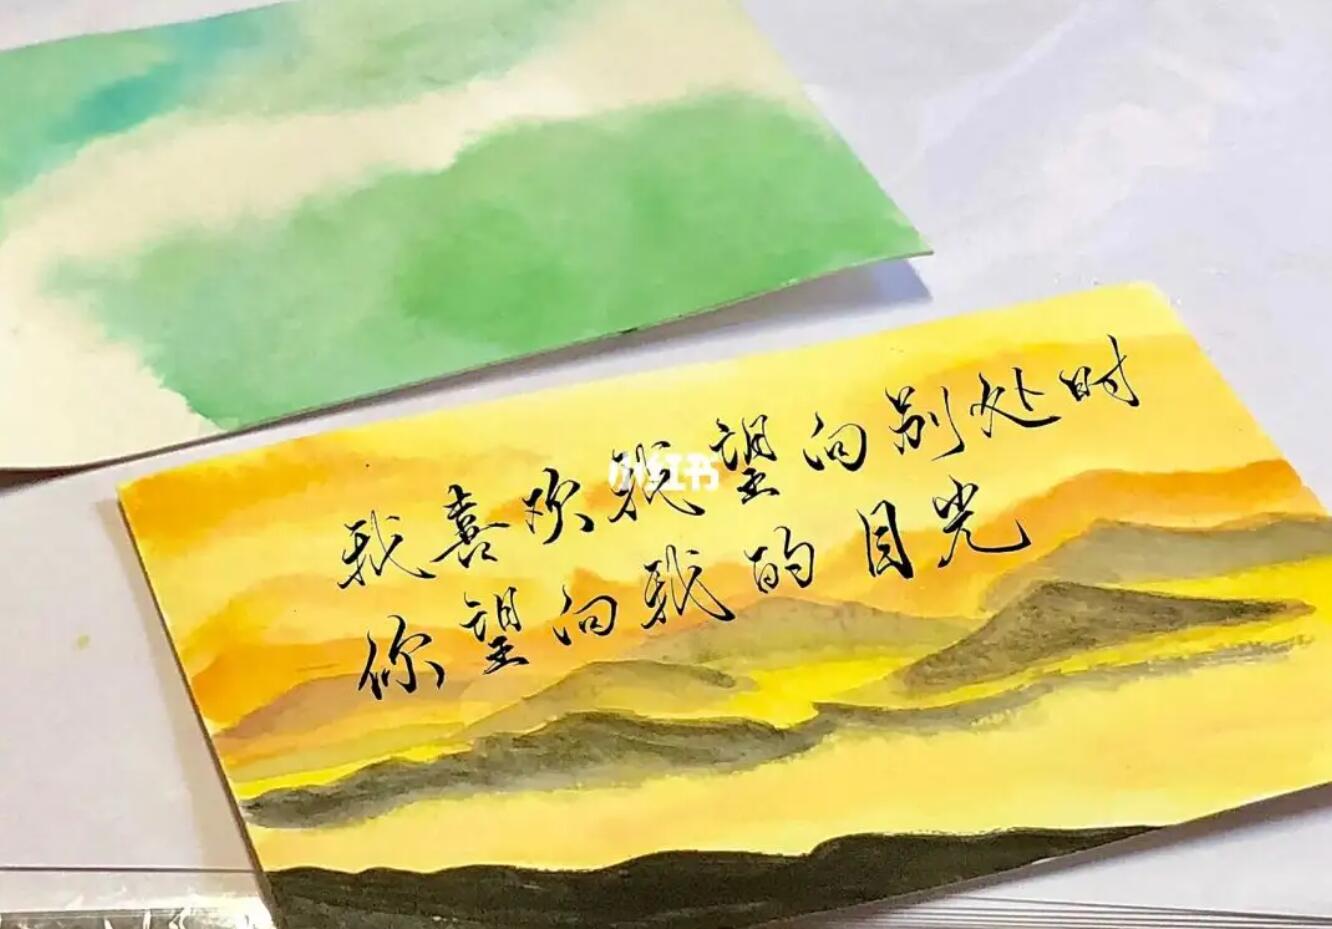 我喜欢我望向别处时
你望向我的目光
小红书